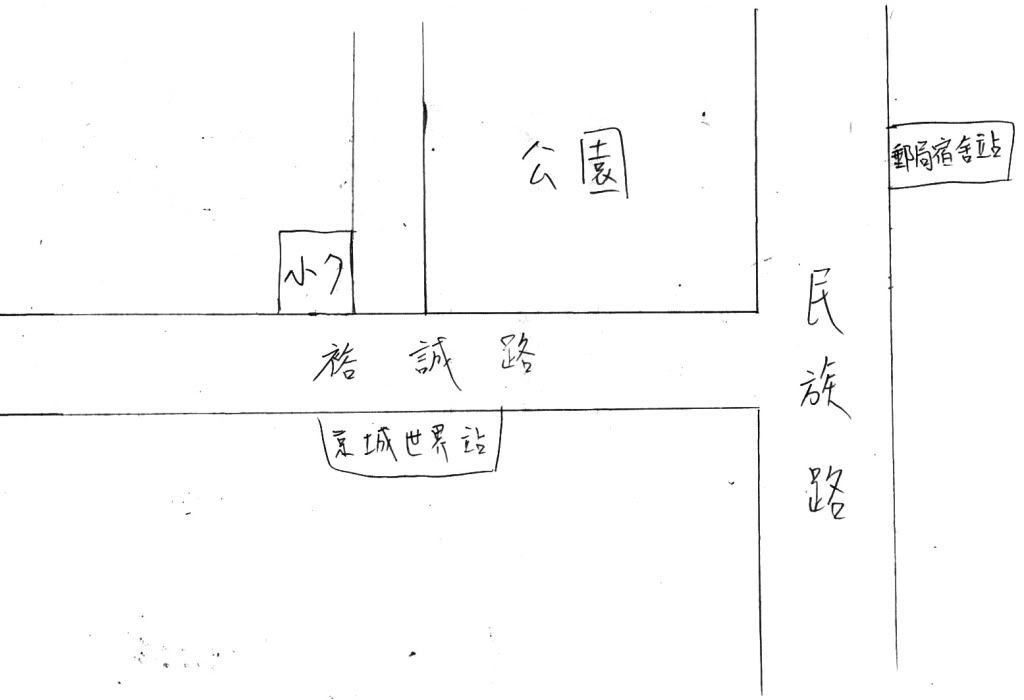 公園
郵局宿舍站
小夕
民族路
裕誠路
京城世界站